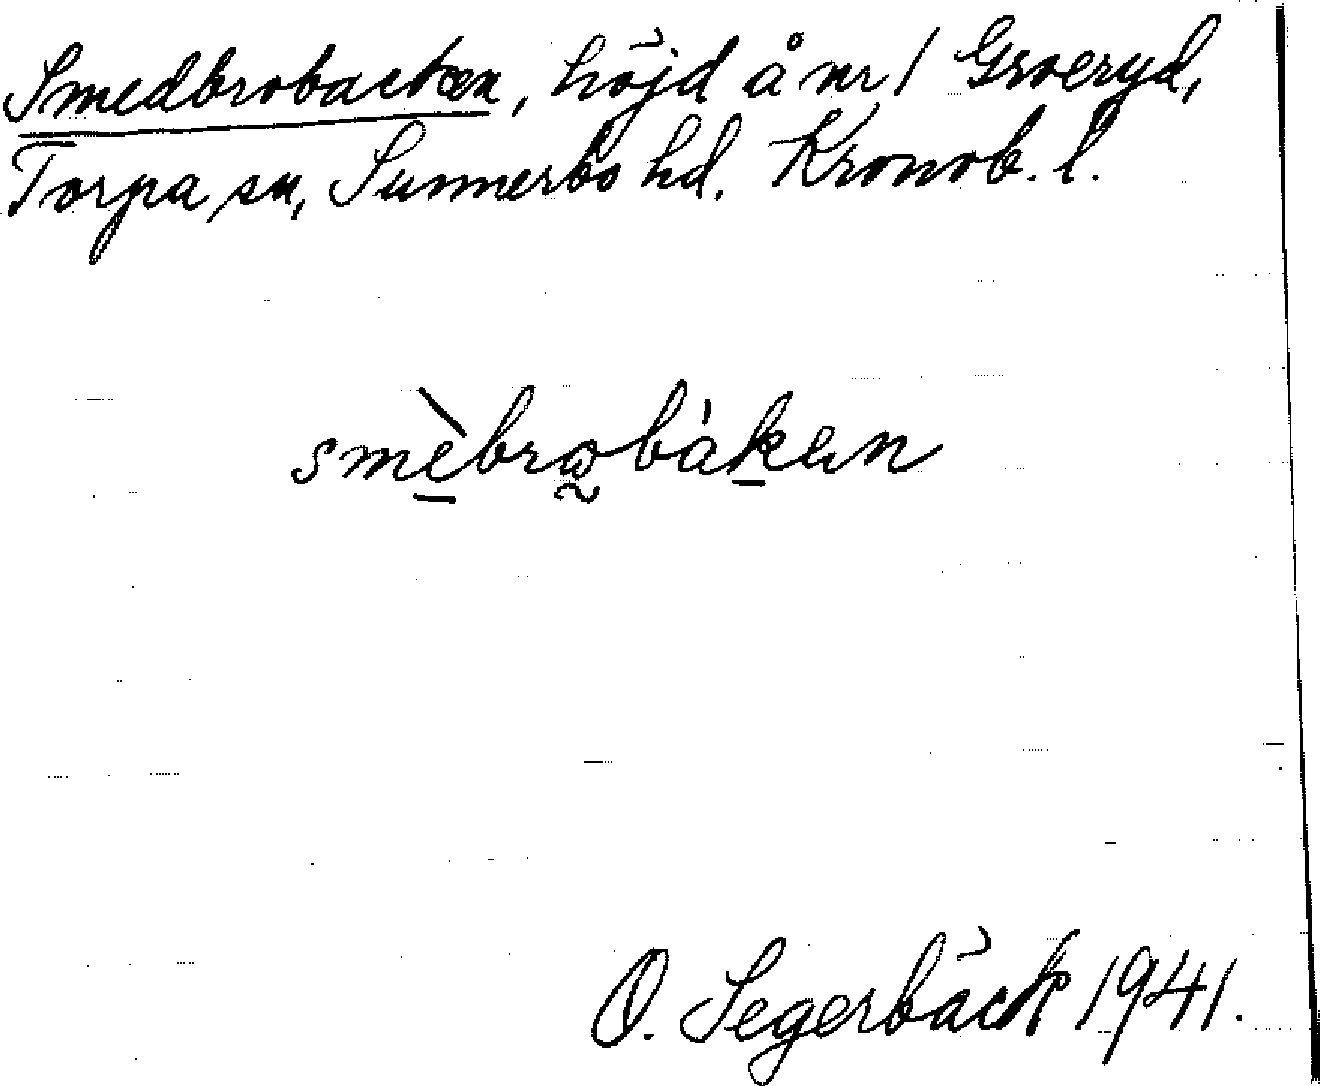 Smedbrobacken, höjd å nr 1 Groeryd,
Torpa sn, Sunnerbo hd. Kronob. l.
smèbrωbàkɐn
O. Segerbäck 1941.